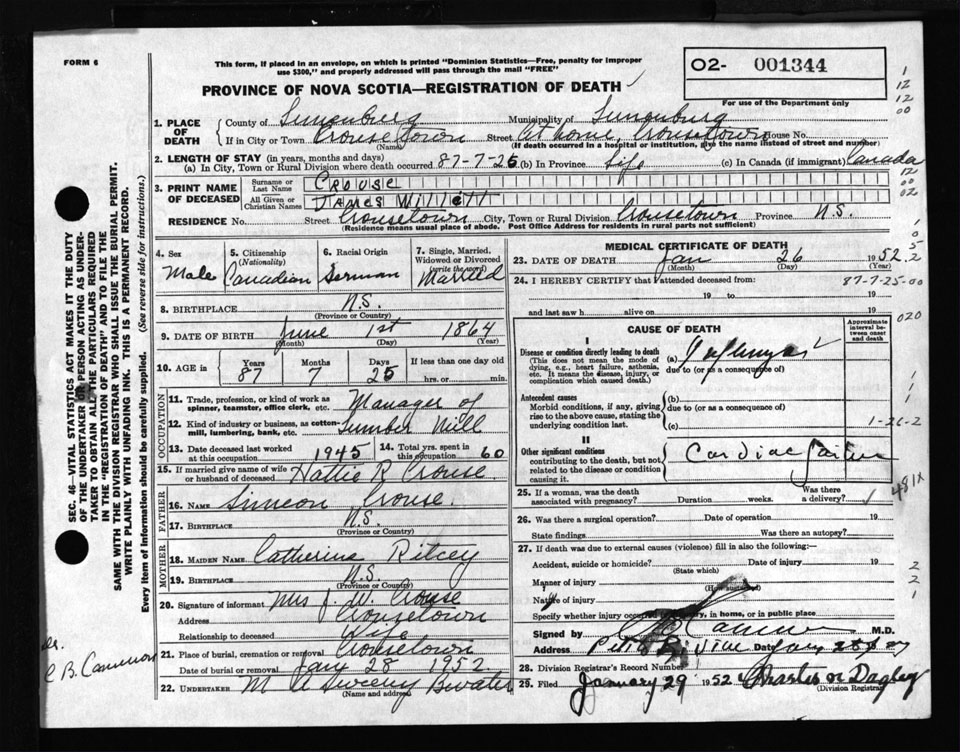 FORM 6
This form, if placed in an envelope, on which is printed "Dominion Statistics—Free, penalty for improper
use $300," and properly addressed will pass through the mail "FREE"
PROVINCE OF NOVA SCOTIA—REGISTRATION OF DEATH
02- 001344
For use of the Department only
1. PLACE OF DEATH
County of Lunenburg Municipality of Lunenburg
If in City or Town Crousetown Street At home, Crousetown House No.
(Name) (If death occurred in a hospital or institution, give the name instead of street and number)
2. LENGTH OF STAY (in years, months and days)
(a) In City, Town or Rural Division where death occurred 87-7-25 (b) In Province Life (c) In Canada (if immigrant) Canada
3. PRINT NAME OF DECEASED
Surname or Last Name CROUSE
All Given or Christian Names JAMES WILLETT
RESIDENCE No. Street Crousetown City, Town or Rural Division Crousetown Province N.S.
(Residence means usual place of abode. Post Office Address for residents in rural parts not sufficient)
4. Sex Male
5. Citizenship (Nationality) Canadian
6. Racial Origin German
7. Single, Married, Widowed or Divorced (write the word) Married
8. BIRTHPLACE N.S.
(Province or Country)
9. DATE OF BIRTH June 1st 1864
(Month) (Day) (Year)
10. AGE in Years 87 Months 7 Days 25 If less than one day old hrs. or min.
OCCUPATION
11. Trade, profession, or kind of work as spinner, teamster, office clerk, etc. Manager of
12. Kind of industry or business, as cotton-mill, lumbering, bank, etc. Lumber Mill
13. Date deceased last worked at this occupation 1945
14. Total yrs. spent in this occupation 60
15. If married give name of wife or husband of deceased Hattie R Crouse
FATHER
16. NAME Simeon Crouse
17. BIRTHPLACE N.S.
(Province or Country)
MOTHER
18. MAIDEN NAME Catherine Ritcey
19. BIRTHPLACE N.S.
(Province or Country)
20. Signature of informant Mrs J. W. Crouse
Address Crousetown
Relationship to deceased Wife
21. Place of burial, cremation or removal Crousetown
Date of burial or removal Jan 28 1952
22. UNDERTAKER M A Sweeny Bwater
(Name and address)
MEDICAL CERTIFICATE OF DEATH
23. DATE OF DEATH Jan 26 1952
(Month) (Day) (Year)
24. I HEREBY CERTIFY that I attended deceased from:
19 to 19
and last saw h alive on 19
CAUSE OF DEATH
Approximate interval between onset and death
I
Disease or condition directly leading to death
(This does not mean the mode of dying, e.g., heart failure, asthenia, etc. It means the disease, injury, or complication which caused death.)
(a)
due to (or as a consequence of)
Antecedent causes
Morbid conditions, if any, giving rise to the above cause, stating the underlying condition last.
(b)
due to (or as a consequence of)
(c)
II
Other significant conditions
contributing to the death, but not related to the disease or condition causing it.
Cardiac Failure
25. If a woman, was the death associated with pregnancy? Duration weeks. Was there a delivery?
26. Was there a surgical operation? Date of operation 19
State findings Was there an autopsy?
27. If death was due to external causes (violence) fill in also the following:—
Accident, suicide or homicide? Date of injury 19
(State which)
Manner of injury
(How sustained)
Nature of injury
Specify whether injury occurred in industry, in home, or in public place
Signed by M.D.
Address Petite Riviere Date Jan 28
28. Division Registrar's Record Number
29. Filed January 29 1952
(Division Registrar)
SEC. 46—VITAL STATISTICS ACT MAKES IT THE DUTY
OF THE UNDERTAKER OR PERSON ACTING AS UNDER-
TAKER TO OBTAIN ALL THE PARTICULARS REQUIRED
IN THE "REGISTRATION OF DEATH" AND TO FILE THE
SAME WITH THE DIVISION REGISTRAR WHO SHALL ISSUE THE BURIAL PERMIT.
WRITE PLAINLY WITH UNFADING INK. THIS IS A PERMANENT RECORD.
Every item of information should be carefully supplied. (See reverse side for instructions.)
Dr.
C B. Cameron
1
12
12
00
12
00
02
1
0
5
2
87-7-25-00
020
1
1
1
1-26-2
481X
2
2
1